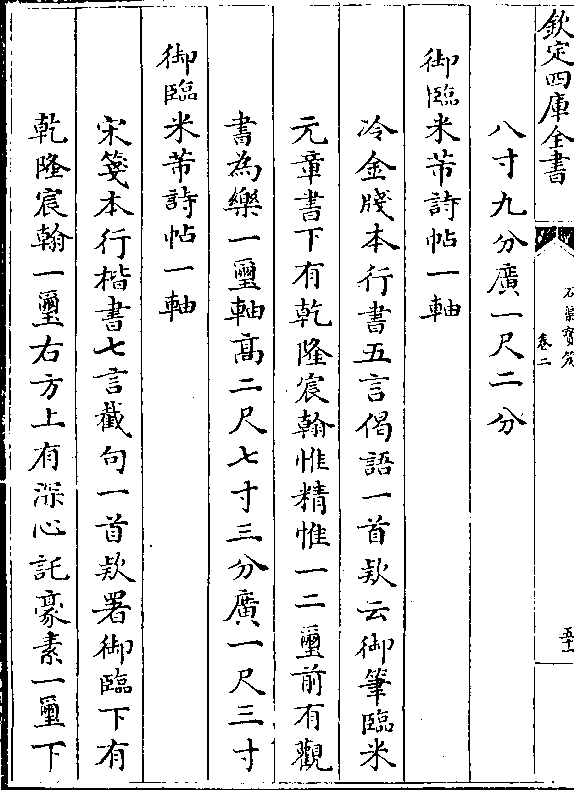 欽定四庫全書
石渠寳笈
卷二
八寸九分廣一尺二分
御臨米芾詩帖一軸
冷金牋本行書五言偈語一首款云御筆臨米
元章書下有乾隆宸翰惟精惟一二璽前有觀
書為樂一璽軸髙二尺七寸三分廣一尺三寸
御臨米芾詩帖一軸
宋箋本行楷書七言截句一首款署御臨下有
乾隆宸翰一璽右方上有深心託豪素一璽下